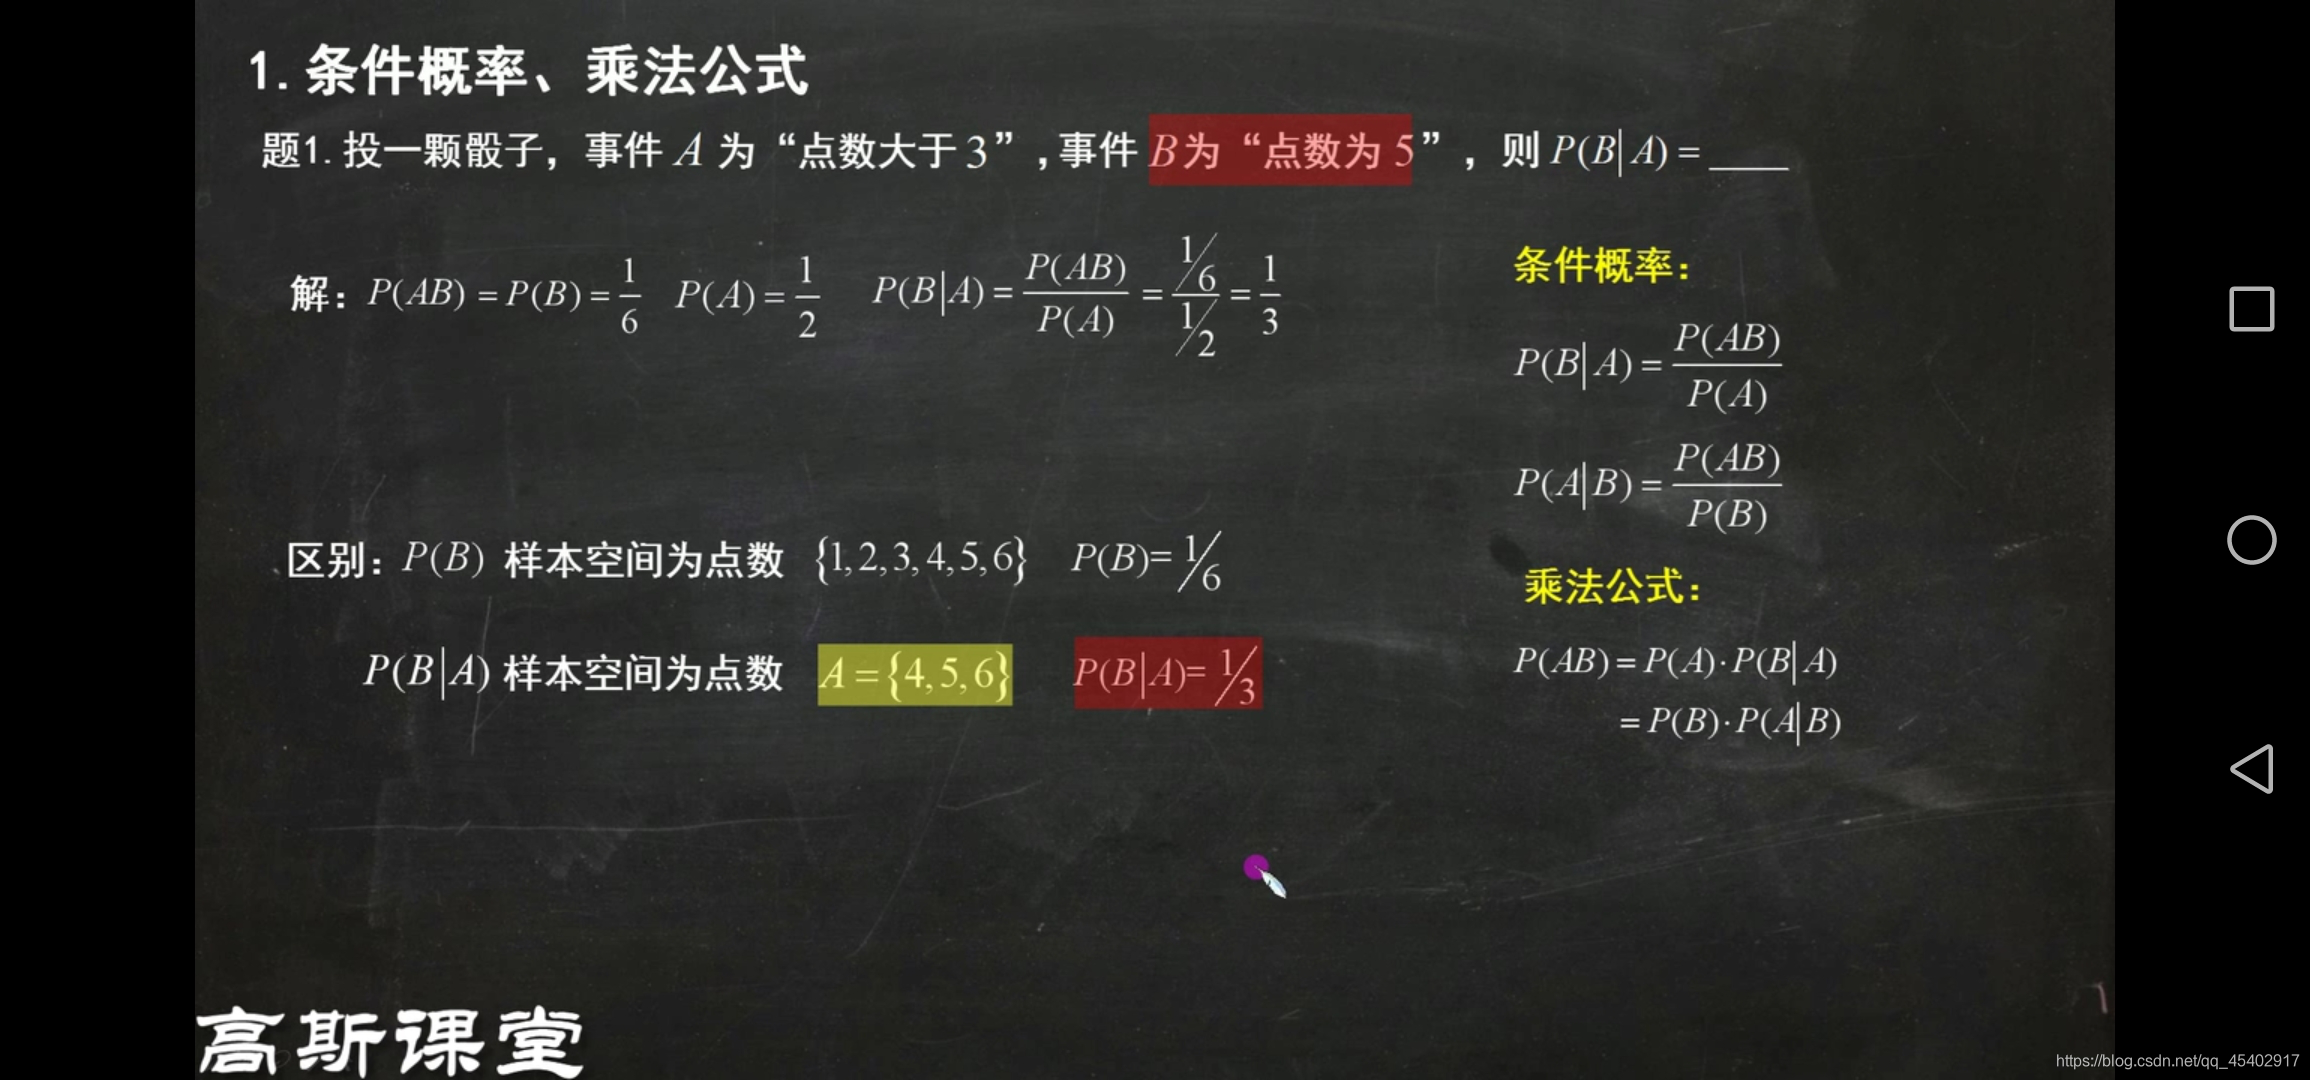 1.条件概率、乘法公式
题1.投一颗骰子，事件 A 为“点数大于 3”,事件 B为“点数为 5”，则 P(B|A) = ____
解：P(AB) = P(B) = 1/6 P(A) = 1/2 P(B|A) = P(AB)/P(A) = (1/6)/(1/2) = 1/3
条件概率：
P(B|A) = P(AB)/P(A)
P(A|B) = P(AB)/P(B)
区别：P(B) 样本空间为点数 {1,2,3,4,5,6} P(B)= 1/6
乘法公式：
P(B|A) 样本空间为点数 A={4,5,6} P(B|A)= 1/3
P(AB) = P(A)·P(B|A)
= P(B)·P(A|B)
高斯课堂
https://blog.csdn.net/qq_45402917